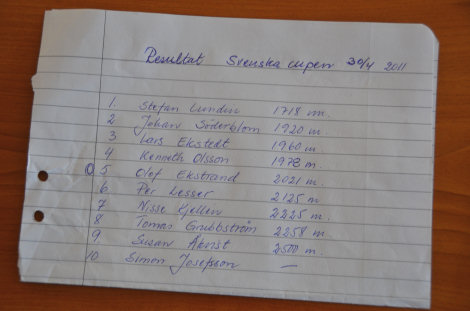 Resultat Svenska cupen 30/4 2011
1. Stefan Lundin 1718 m.
2 Johan Söderblom 1920 m.
3 Lars Ekstedt 1960 m.
4 Kenneth Olsson 1978 m.
5 Olof Ekstrand 2021 m.
6. Per Lesser 2125 m
7. Nisse Kjellén 2225 m.
8. Tomas Grubbström 2258 m.
9. Susan Åkvist 2500 m.
10. Simon Josefsson —